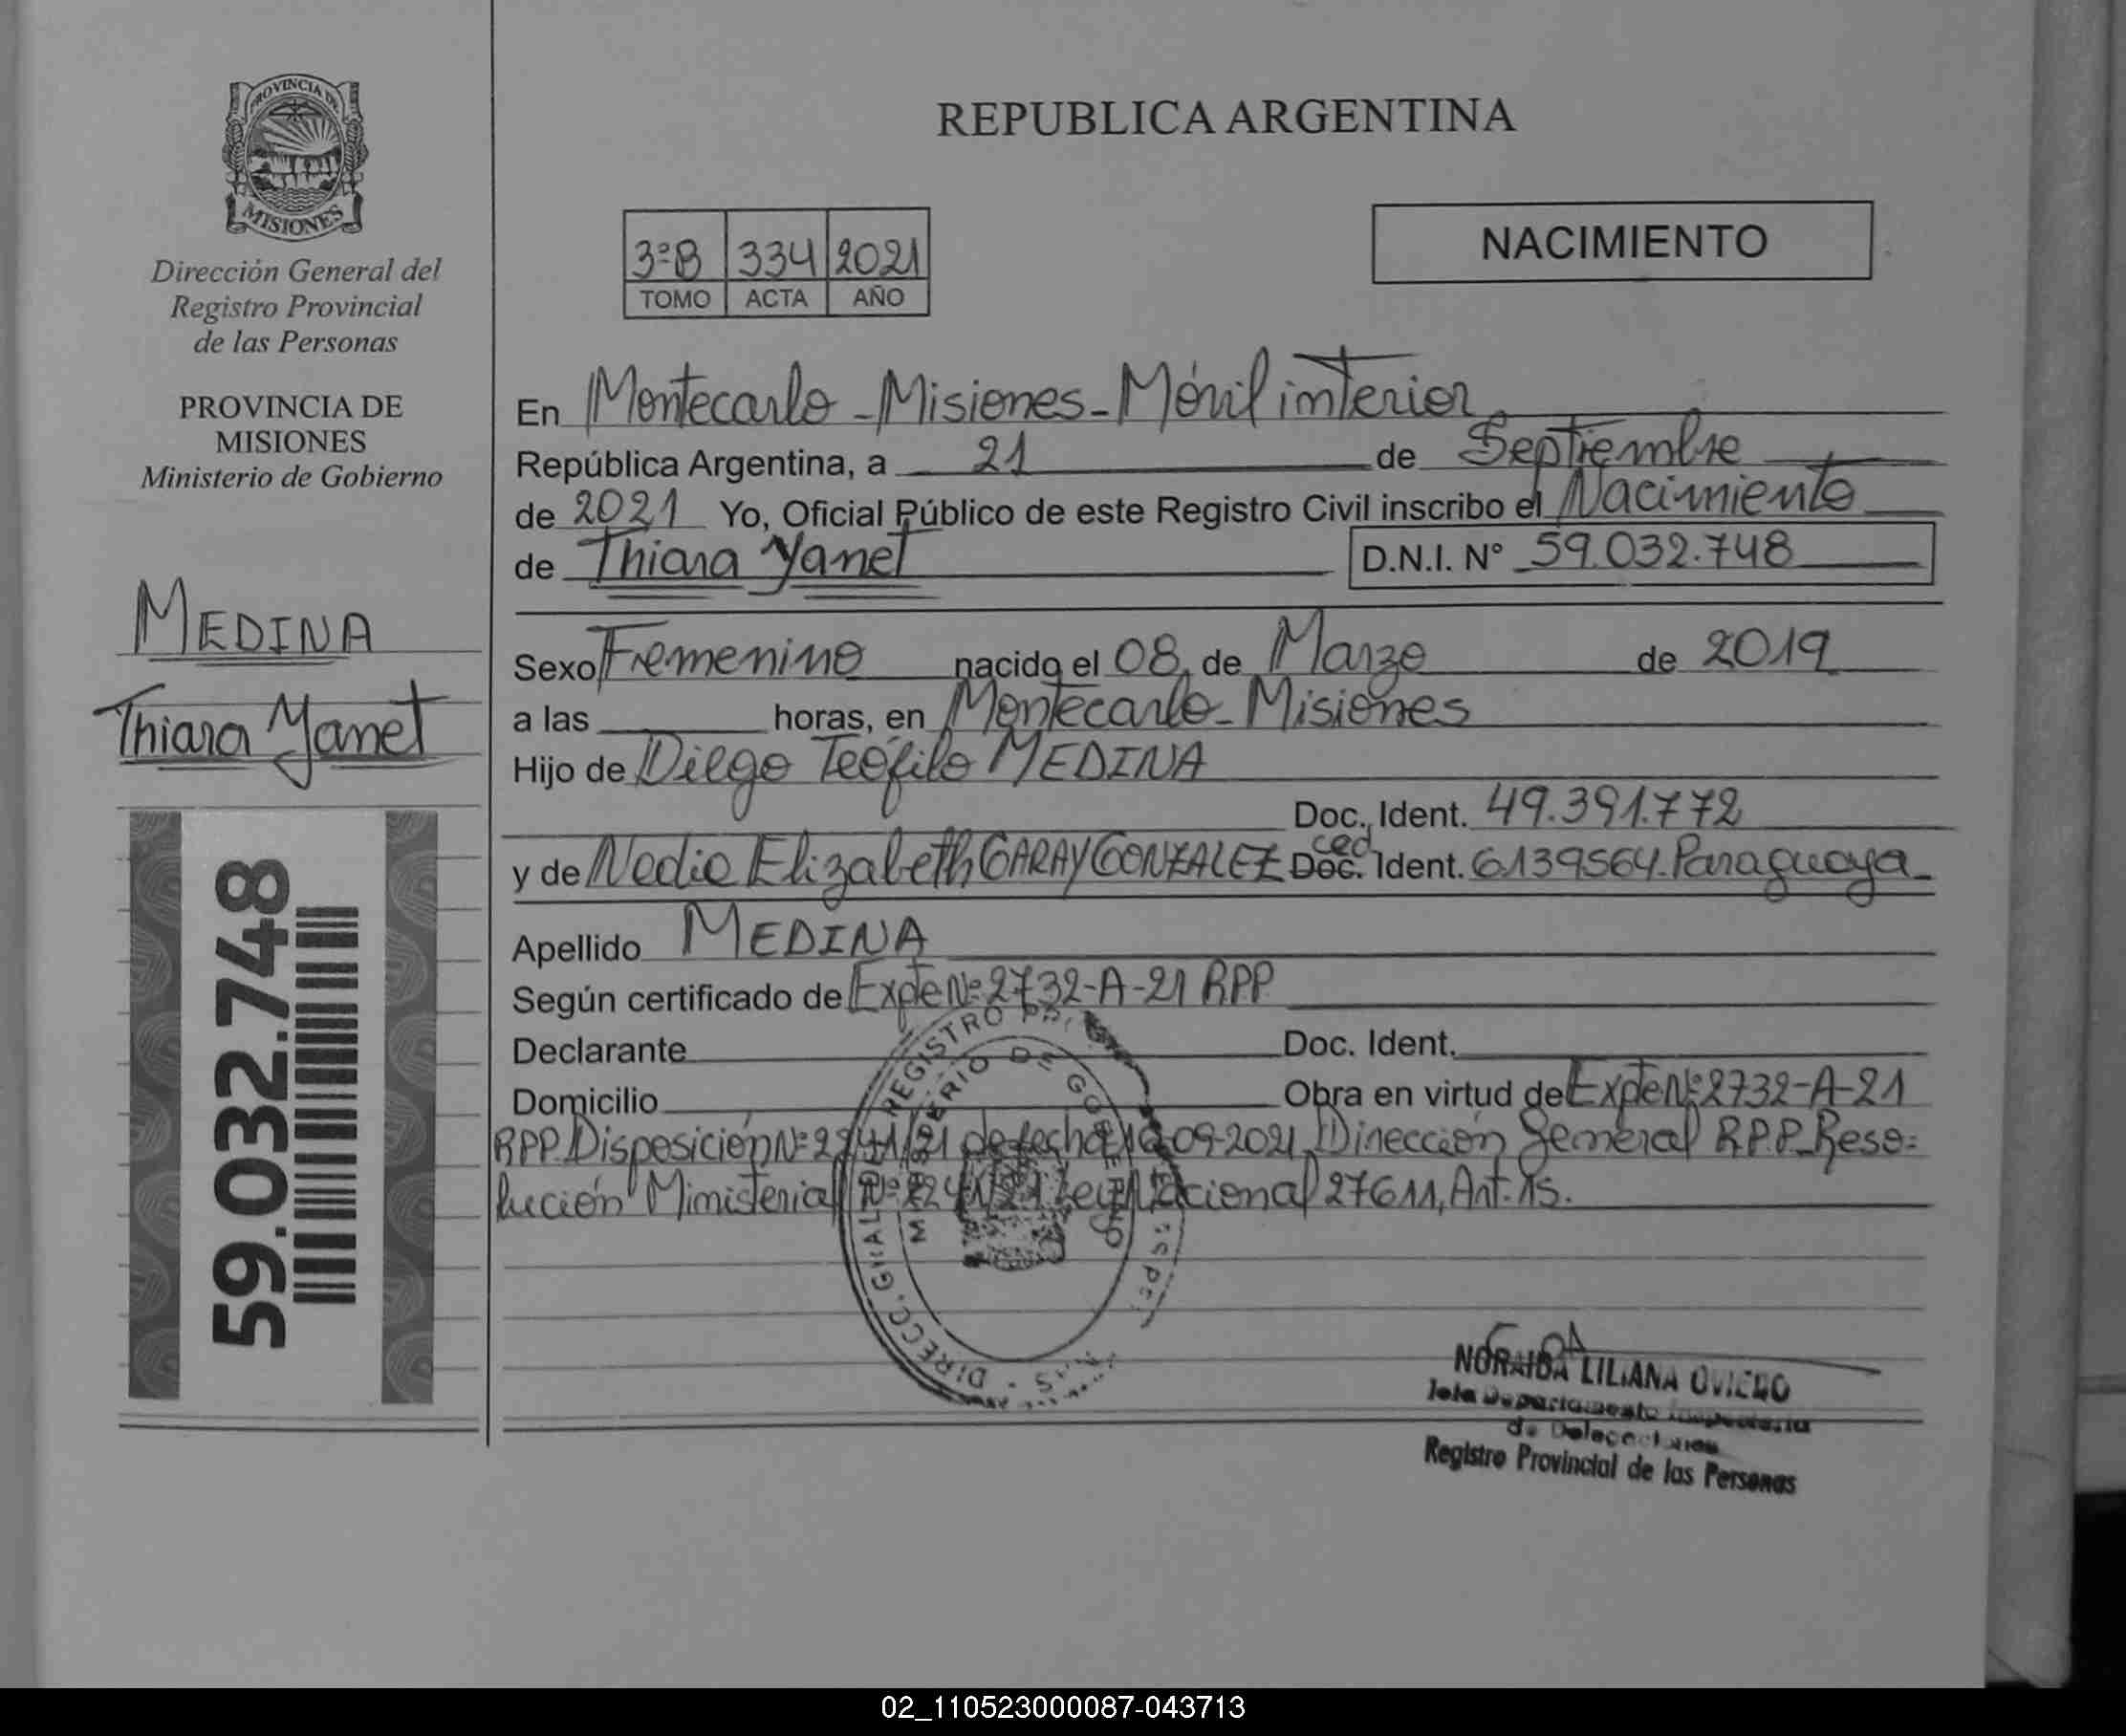 PROVINCIA DE
MISIONES
Dirección General del
Registro Provincial
de las Personas
PROVINCIA DE
MISIONES
Ministerio de Gobierno
MEDINA
Thiara Yanet
59.032.748
REPUBLICA ARGENTINA
3ºB 334 2021
TOMO ACTA AÑO
NACIMIENTO
En Montecarlo - Misiones - Móvil interior
República Argentina, a 21 de Septiembre
de 2021 Yo, Oficial Público de este Registro Civil inscribo el Nacimiento
de Thiara Yanet D.N.I. N° 59.032.748
Sexo Femenino nacido el 08 de Marzo de 2019
a las horas, en Montecarlo - Misiones
Hijo de Diego Teófilo MEDINA
Doc. Ident. 49.391.772
y de Nedie Elizabeth GARAY GONZALEZ Doc. ced Ident. 6139564. Paraguaya -
Apellido MEDINA
Según certificado de Expte Nº 2732-A-21 RPP
Declarante Doc. Ident.
Domicilio Obra en virtud de Expte Nº 2732-A-21
RPP. Disposición Nº de fecha 09-2021, Dirección General R.P.P. Reso=
lución Ministerial Ley Nacional 27611, Art. 15.
DIRECC. GRAL. DEL REGISTRO
MINISTERIO DE GOBIERNO
NORAIDA LILIANA OVIEDO
Jefa Departamento
de Delegaciones
Registro Provincial de las Personas
02_110523000087-043713